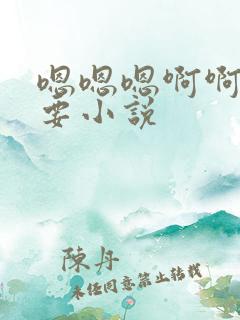 嗯嗯嗯啊啊
要小说
陳丹
未经同意禁止转载